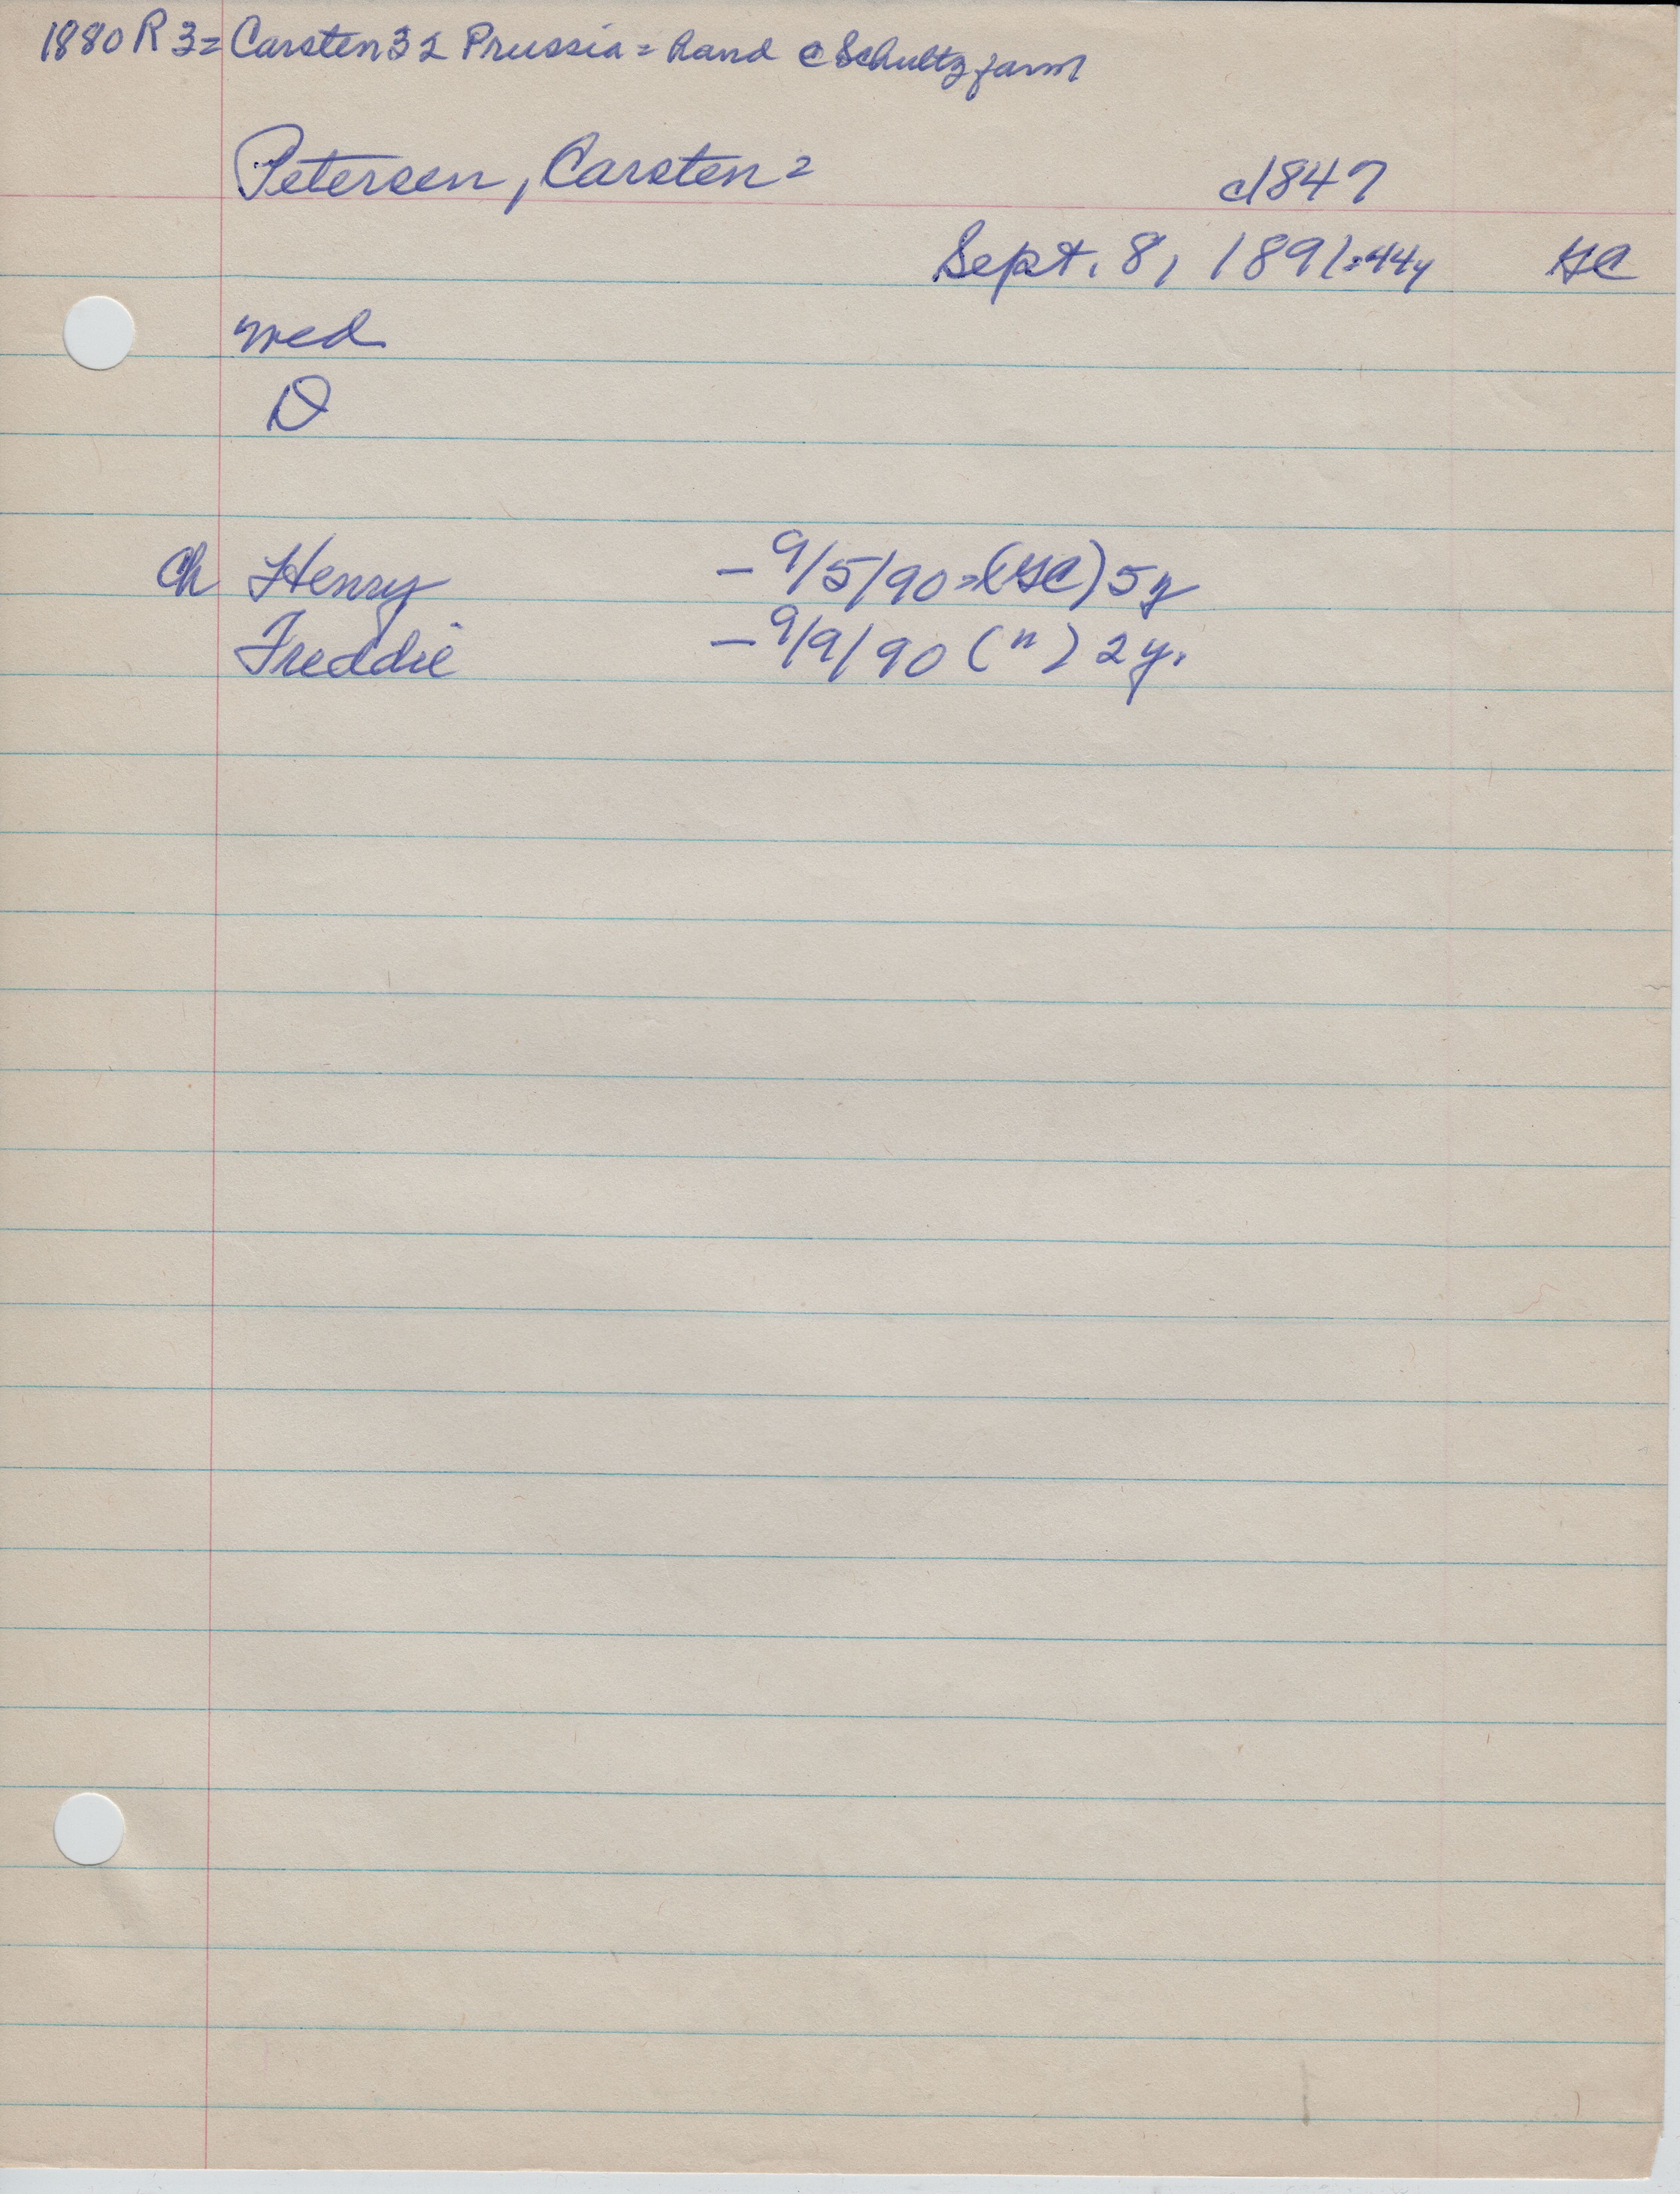 1880 R 3= Carsten 32 Prussia = hand c Schultz farm
Petersen, Carsten =
c1847
Sept. 8, 1891=44y GC
med
D
Ch Henry - 9/5/90=(GC) 5y
Freddie - 9/9/90 (") 2y.